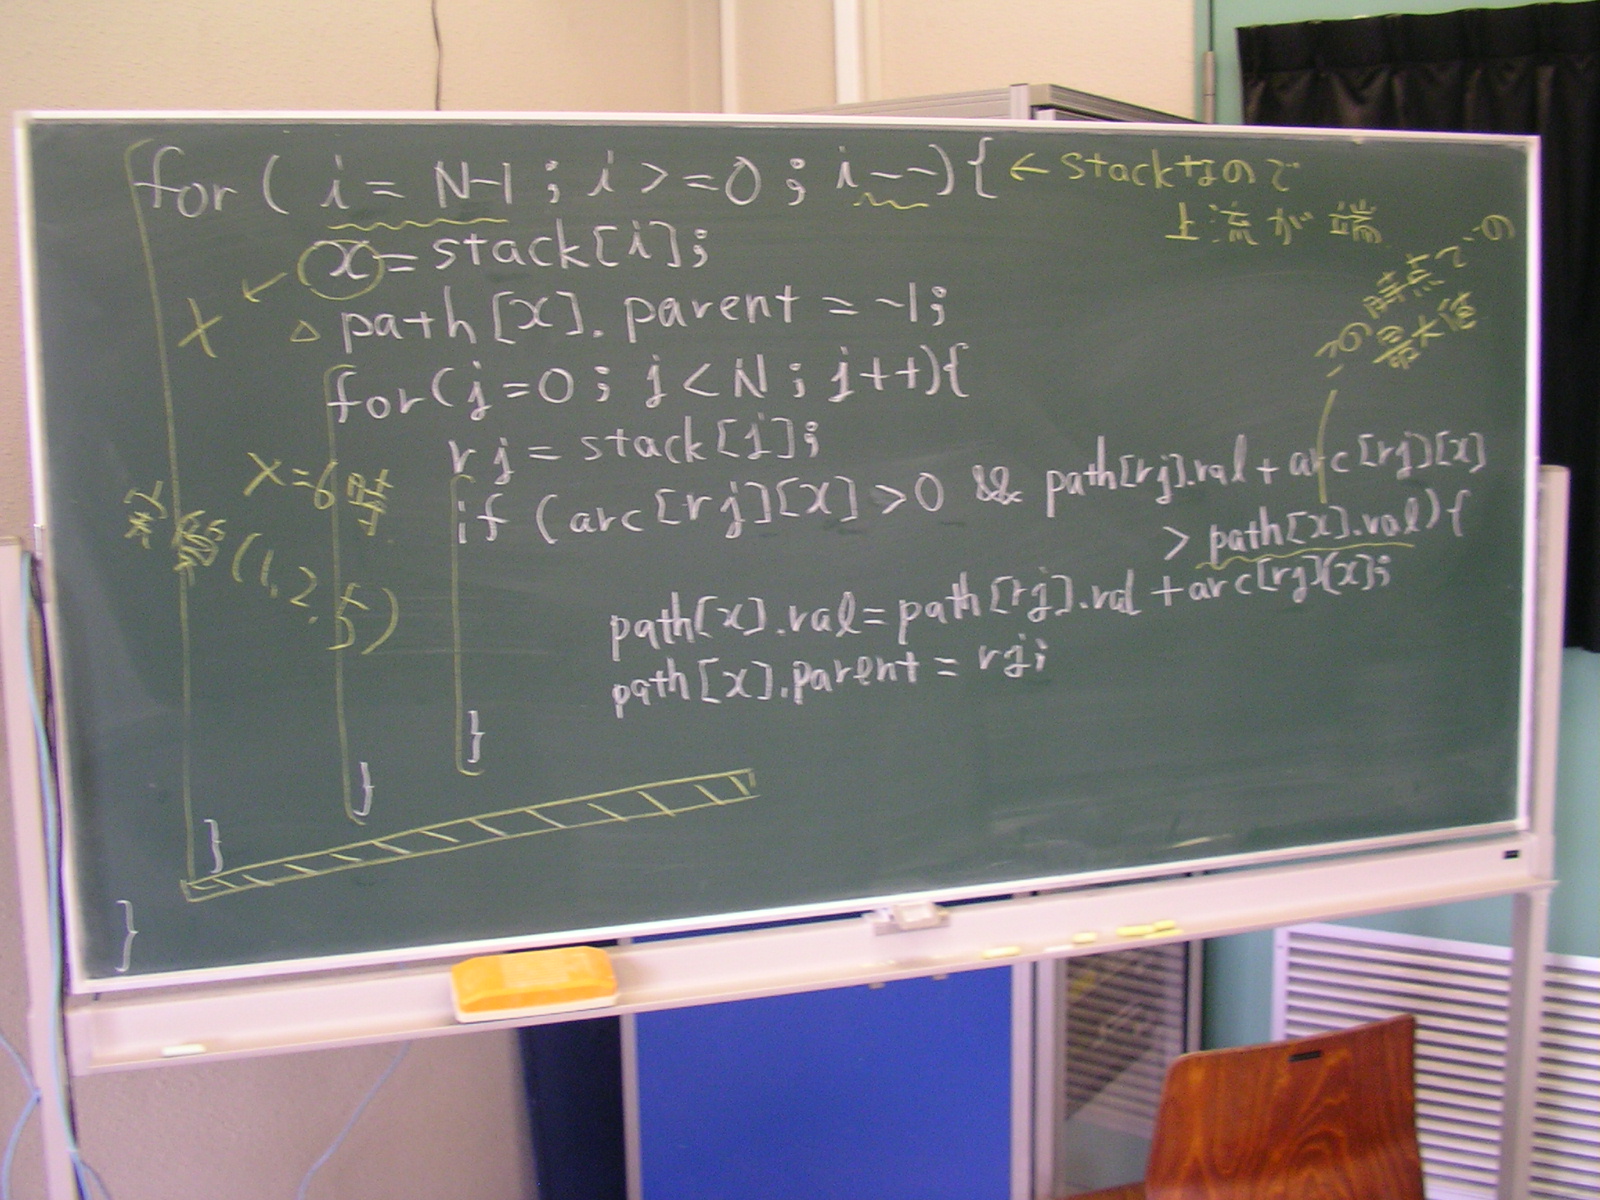 for ( i = N-1 ; i >= 0 ; i-- ) { ← stackなので
上流が端
x = stack[i];
X ← △ path[x].parent = -1;
この時点での
最大値
for(j=0 ; j<N ; j++){
rj = stack[j];
x=6 時
(1,2,5)
if (arc[rj][x] >0 && path[rj].val + arc[rj][x]
> path[x].val){
path[x].val=path[rj].val + arc[rj][x];
path[x].parent = rj;
}
}
}
}